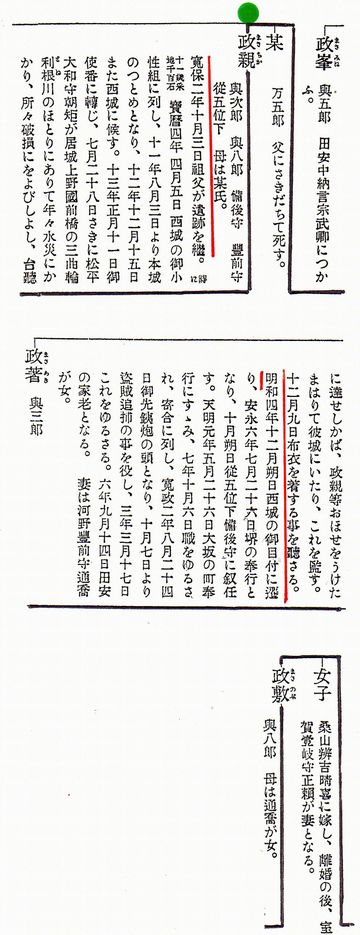 政峯 まさみね
與五郎 田安中納言宗武卿につか
ふ。
某
万五郎 父にさきだちて死す。
政親 まさちか
與次郎 與八郎 備後守 豐前守
從五位下 母は某氏。
寬保二年十月三日祖父が遺跡を繼。時に
十一歲采地千百石 寶曆四年四月五日西城の御小
性組に列し、十一年八月三日より本城
のつとめとなり、十二年十二月十五日
また西城に候す。十三年正月十一日御
使番に轉じ、七月二十八日さきに松平
大和守朝矩が居城上野國前橋の三曲輪
利根川のほとりにありて年々水災にか
かり、所々破損にをよびしよし、台聽
に達せしかば、政親等おほせをうけた
まはりて彼城にいたり、これを監す。
十二月九日布衣を着する事を聽さる。
明和四年十二月朔日西城の御目付に遷
り、安永六年七月二十六日堺の奉行と
なり、十月朔日從五位下備後守に叙任
す。天明元年五月二十六日大坂の町奉
行にすゝみ、七年十月六日職をゆるさ
れ、寄合に列し、寬政二年八月二十四
日御先鐵炮の頭となり、十月七日より
盜賊追捕の事を役し、三年三月十七日
これをゆるさる。六年九月十四日田安
の家老となる。 妻は河野豐前守通喬
が女。
政著 まさあき
與三郎
女子
桑山辨吉晴喜に嫁し、離婚の後、室
賀壹岐守正賴が妻となる。
政敷 まさのぶ
與八郎 母は通喬が女。